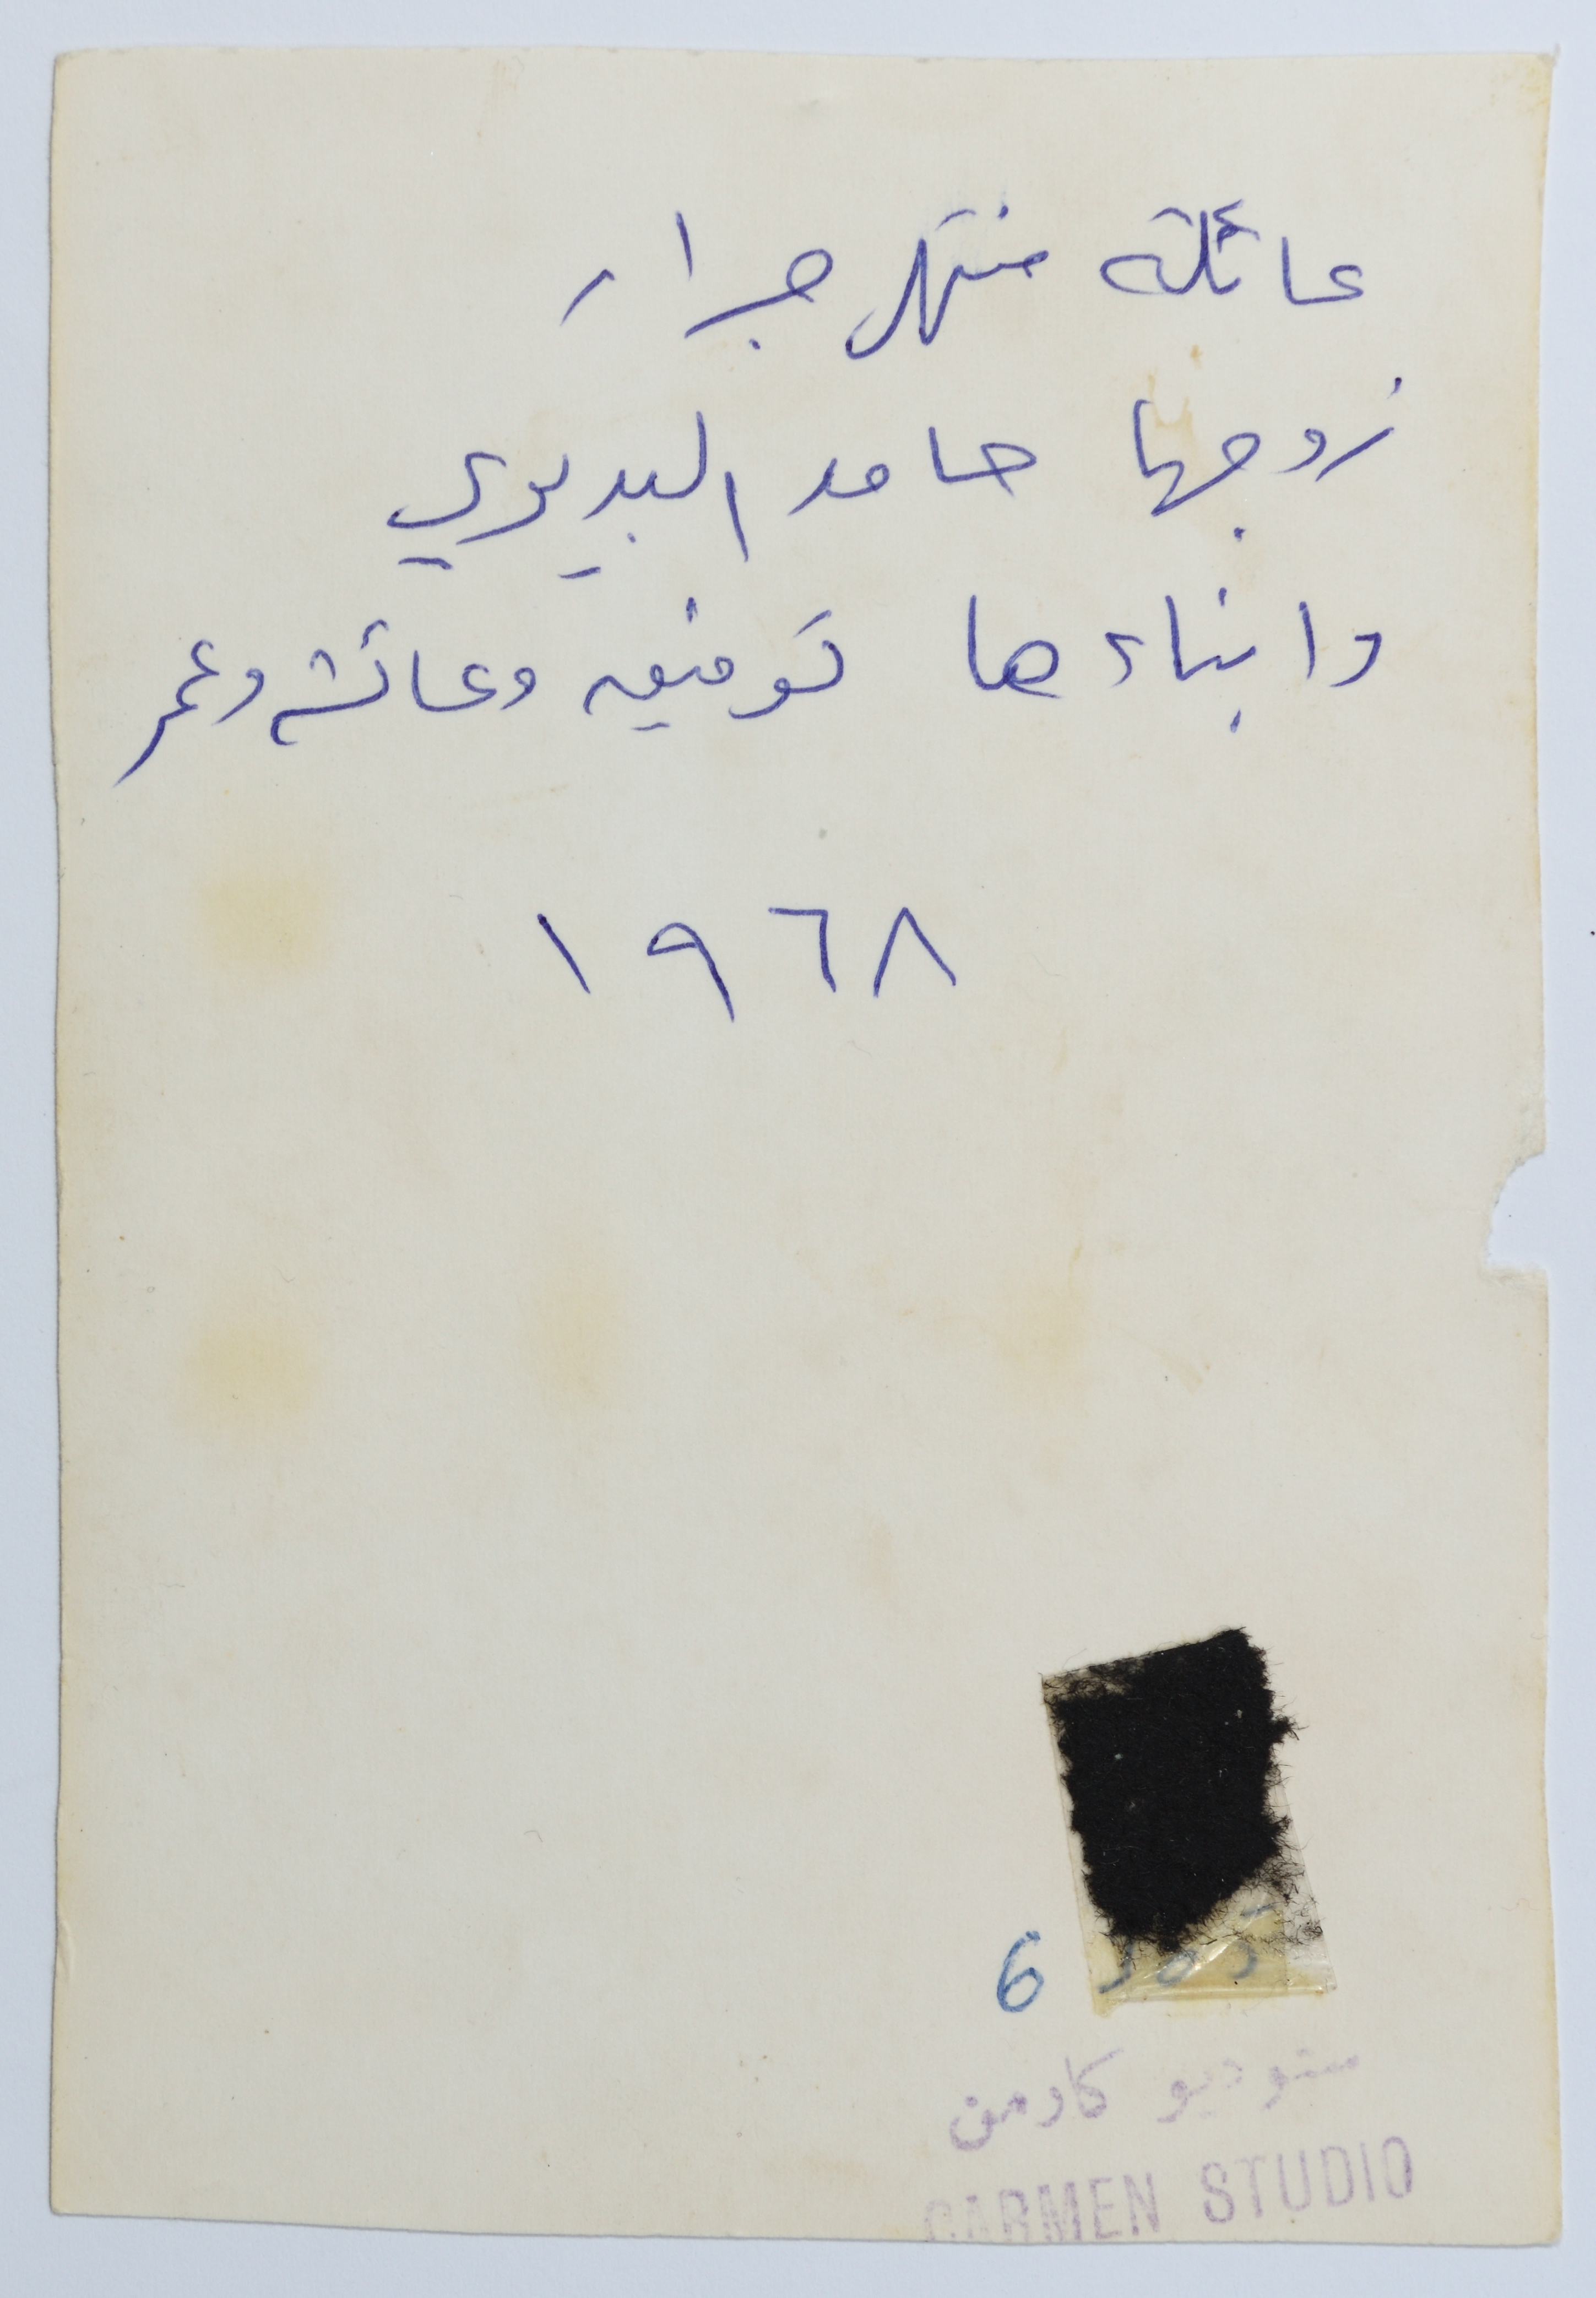 عائلة منتهى جرار
زوجها حامد البديري
وابناءها توفيق وعائشه وعمر
١٩٦٨
6
ستوديو كارمن
CARMEN STUDIO